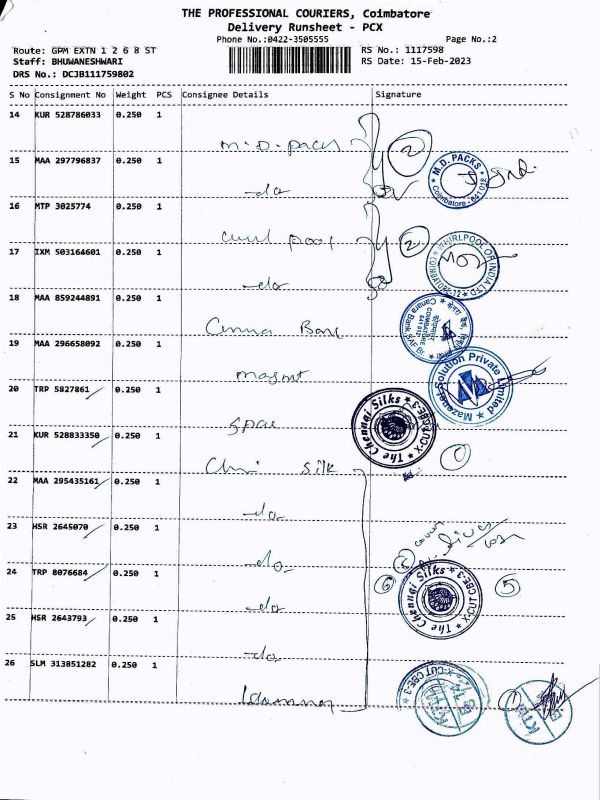 THE PROFESSIONAL COURIERS, Coimbatore
Delivery Runsheet - PCX
Phone No.:0422-3505555
Page No.:2
Route: GPM EXTN 1 2 6 8 ST
RS No.: 1117598
Staff: BHUWANESHWARI
RS Date: 15-Feb-2023
DRS No.: DCJB111759802
S No Consignment No Weight PCS Consignee Details Signature
14 KUR 528786033 0.250 1
M.D. packs
2
15 MAA 297796837 0.250 1
-do
M.D. PACKS
Coimbatore - 641 012
16 MTP 3025774 0.250 1
pool
2
17 IXM 503164601 0.250 1
-do
WHIRLPOOL OF INDIA LTD
COIMBATORE-12
18 MAA 859244891 0.250 1
Canara Bank
Canara Bank
COIMBATORE
641 012
19 MAA 296658092 0.250 1
Solution Private Limited
20 TRP 5827861 0.250 1
The Chennai Silks
X-CUT CBE-3
21 KUR 528833350 0.250 1
silk
1
22 MAA 295435161 0.250 1
-do
23 HSR 2645070 0.250 1
-do-
24 TRP 8076684 0.250 1
-do
6
5
The Chennai Silks
X-CUT CBE-3
25 HSR 2643793 0.250 1
-do
26 SLM 313051282 0.250 1
X-CUT CBE-3
1